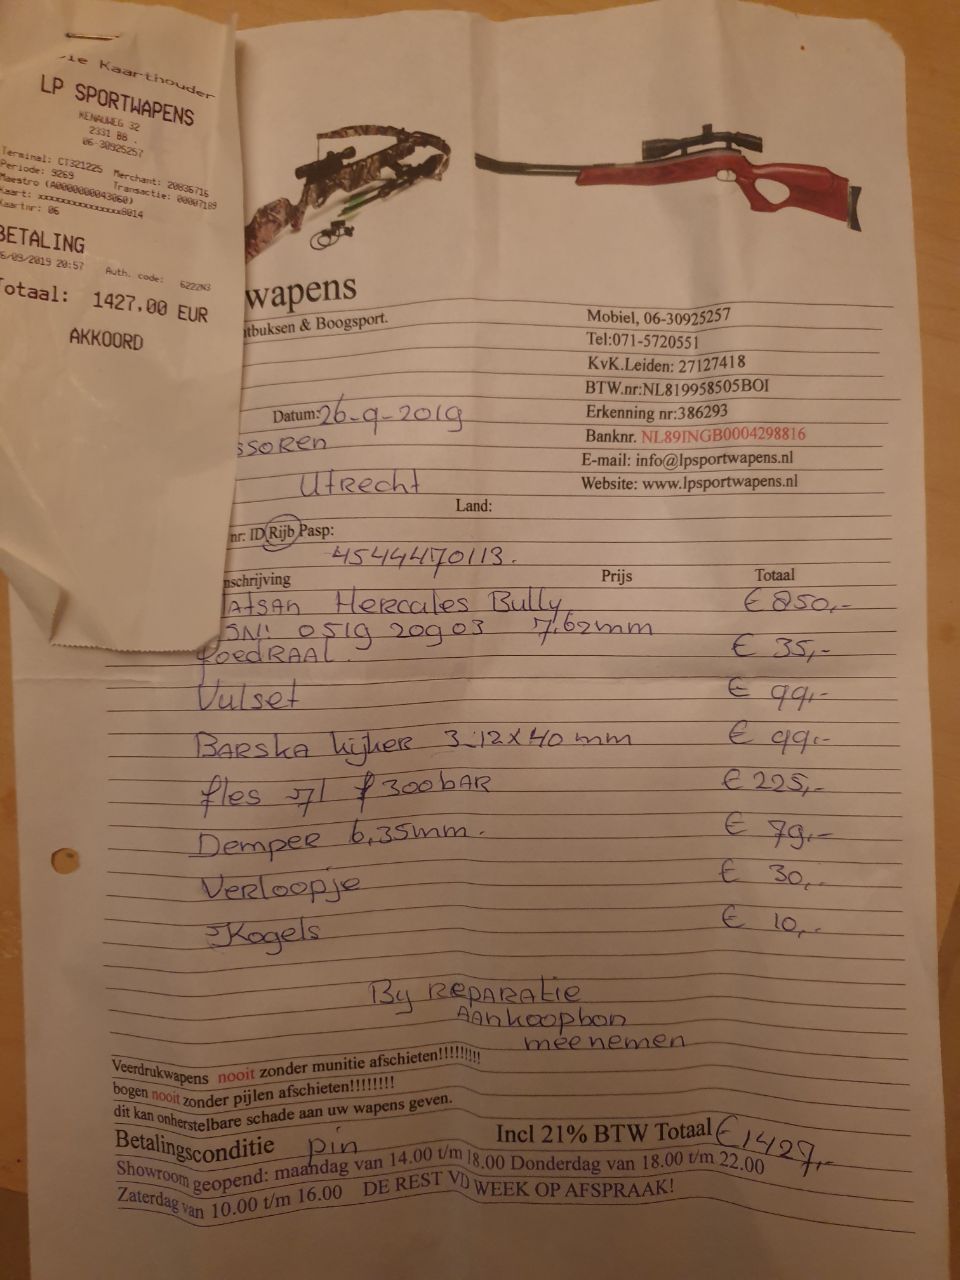 Kaarthouder
LP SPORTWAPENS
KENAUWEG 32
2331 BB .
06-30925257
Terminal: CT321225 Merchant: 20836716
Periode: 9269 Transactie: 00007189
Maestro (A0000000043060)
Kaart: xxxxxxxxxxxxxxx8014
Kaartnr: 06
BETALING
6/09/2019 20:57 Auth. code: 6222N3
Totaal: 1427,00 EUR
AKKOORD
wapens
htbuksen & Boogsport.
Mobiel, 06-30925257
Tel:071-5720551
KvK.Leiden: 27127418
BTW.nr:NL819958505BOI
Erkenning nr:386293
Banknr. NL89INGB0004298816
E-mail: info@lpsportwapens.nl
Website: www.lpsportwapens.nl
Datum: 26-9-2019
ssoren
Utrecht
Land:
nr: ID Rijb Pasp:
4544470113.
nschrijving Prijs Totaal
atsan Hercules Bully € 850,-
SN: 0519 20903 7,62mm
foedRAAL € 35,-
Vulset € 99,-
BARSKA kijker 3-12x40 mm € 99,-
fles 7l 300bAR € 225,-
Demper 6,35mm. € 79,-
Verloopje € 30,-
Kogels € 10,-
By REPARATie
AAnkoopbon
meenemen
Veerdrukwapens nooit zonder munitie afschieten!!!!!!!!!
bogen nooit zonder pijlen afschieten!!!!!!!!
dit kan onherstelbare schade aan uw wapens geven.
Betalingsconditie pin Incl 21% BTW Totaal € 1427,-
Showroom geopend: maandag van 14.00 t/m 18.00 Donderdag van 18.00 t/m 22.00
Zaterdag van 10.00 t/m 16.00 DE REST VD WEEK OP AFSPRAAK!